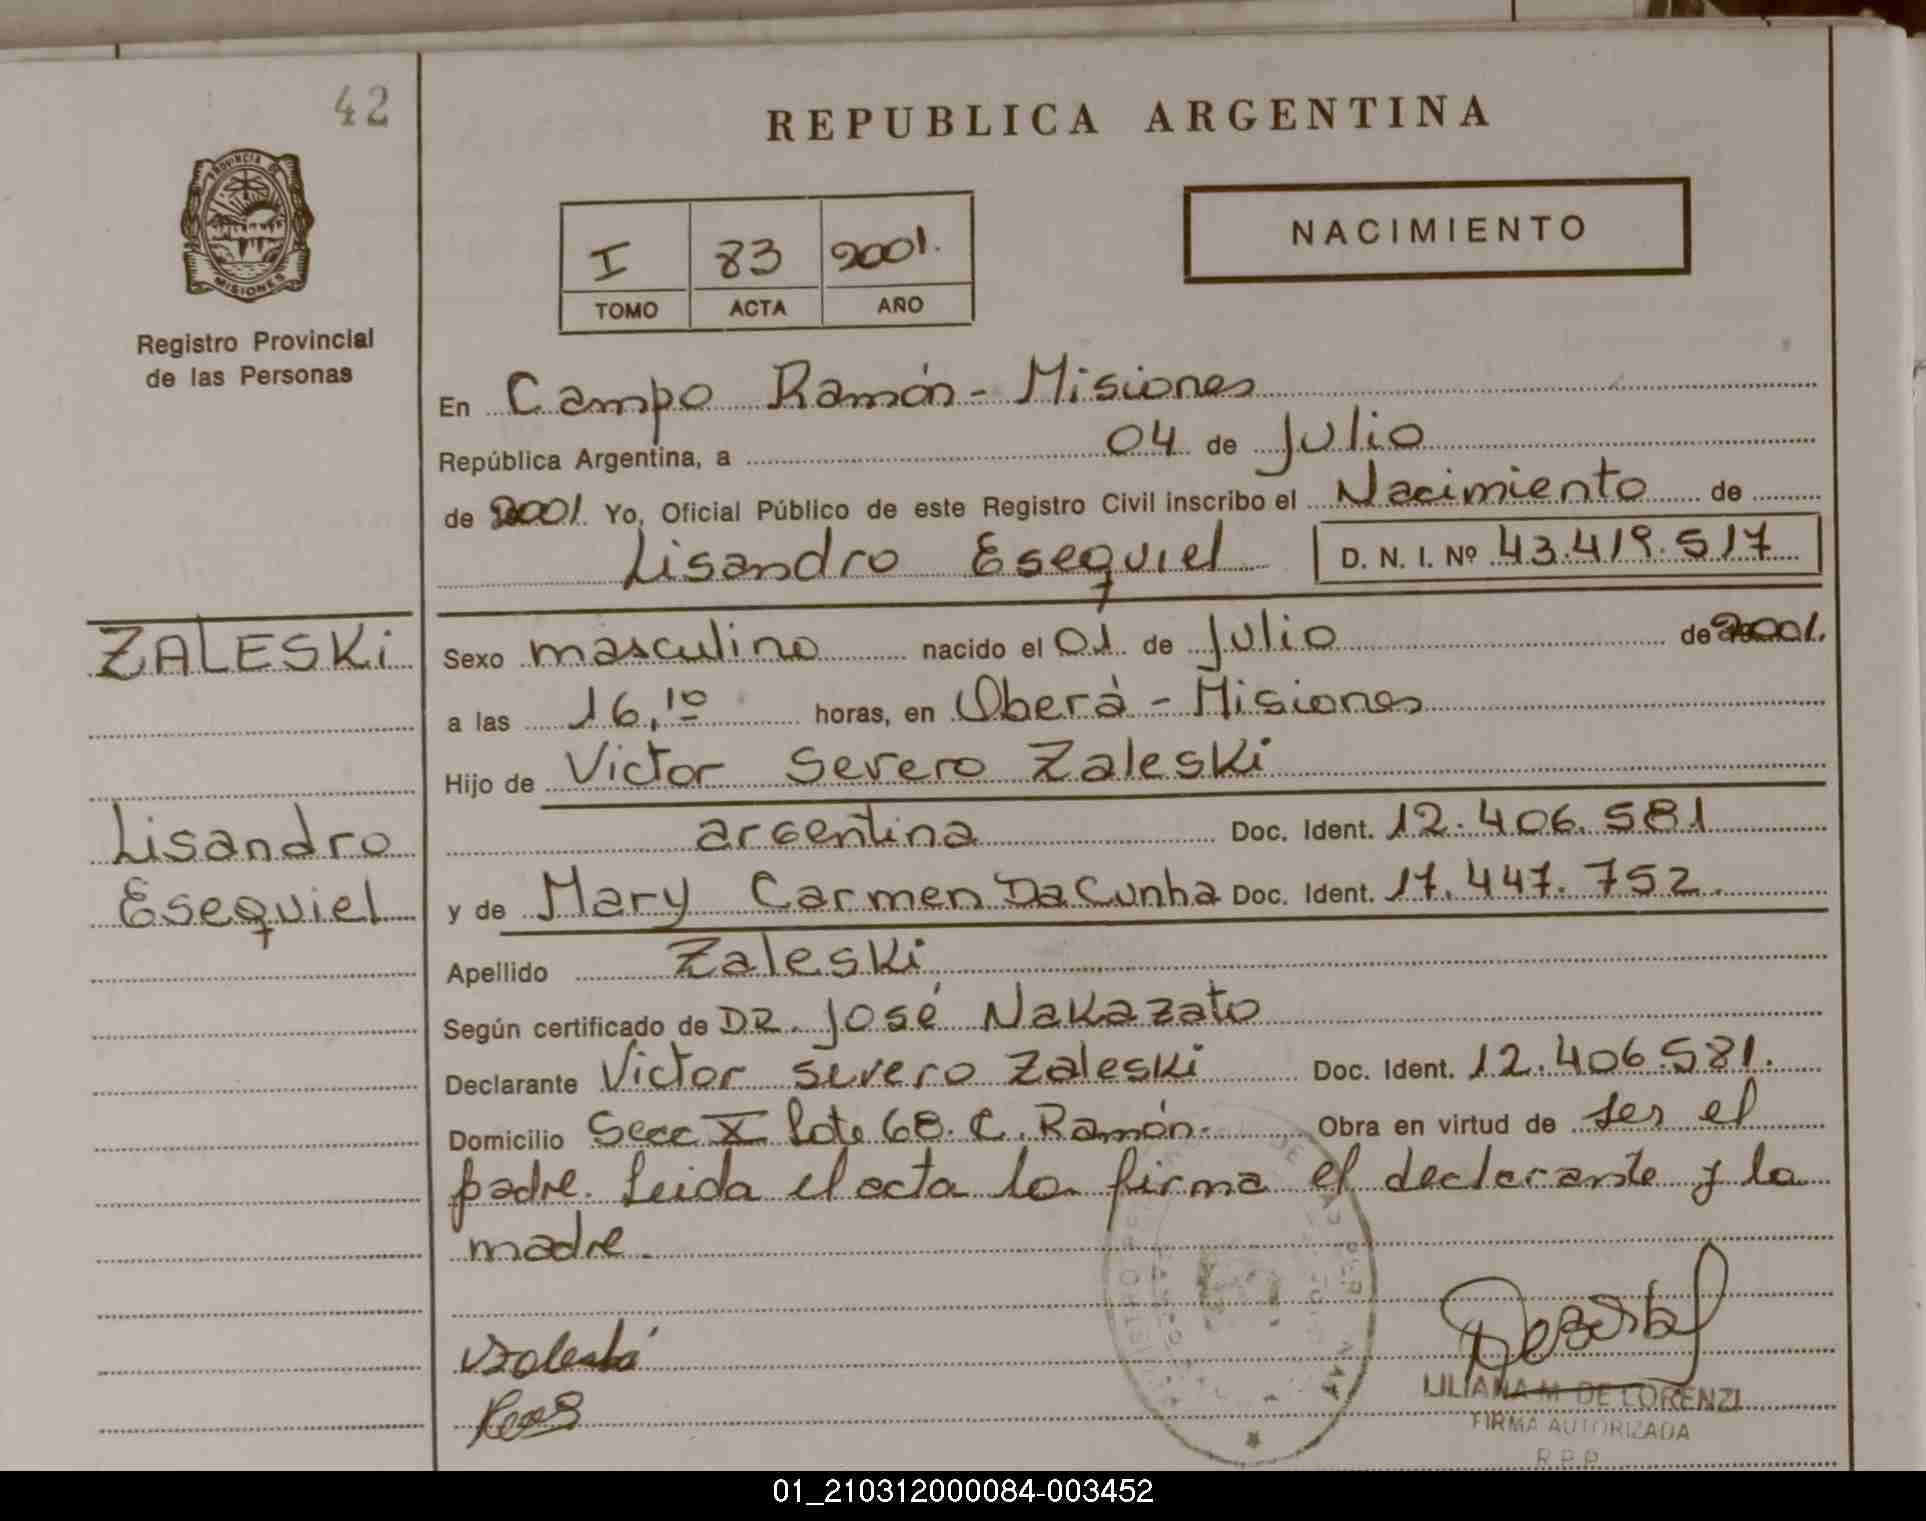 42
REPUBLICA ARGENTINA
PROVINCIA DE
MISIONES
Registro Provincial
de las Personas
I 83 2001.
TOMO ACTA AÑO
NACIMIENTO
En Campo Ramón - Misiones
República Argentina, a 04 de Julio
de 2001. Yo, Oficial Público de este Registro Civil inscribo el Nacimiento de
Lisandro Esequiel D. N. I. Nº 43.419.517
ZALESKi
Sexo masculino nacido el 01 de Julio de 2001.
a las 16,10 horas, en Oberá - Misiones
Hijo de Victor Severo Zaleski
argentina Doc. Ident. 12.406.581
Lisandro
Esequiel
y de Mary Carmen Da Cunha Doc. Ident. 17.447.752.
Apellido Zaleski
Según certificado de DR. José Nakazato
Declarante Victor Severo Zaleski Doc. Ident. 12.406.581.
Domicilio Secc X lote 68. C. Ramón. Obra en virtud de ser el
padre. Leida el acta la firma el declarante y la
madre.
LILIANA M. DE LORENZI
FIRMA AUTORIZADA
R.P.P.
01_210312000084-003452